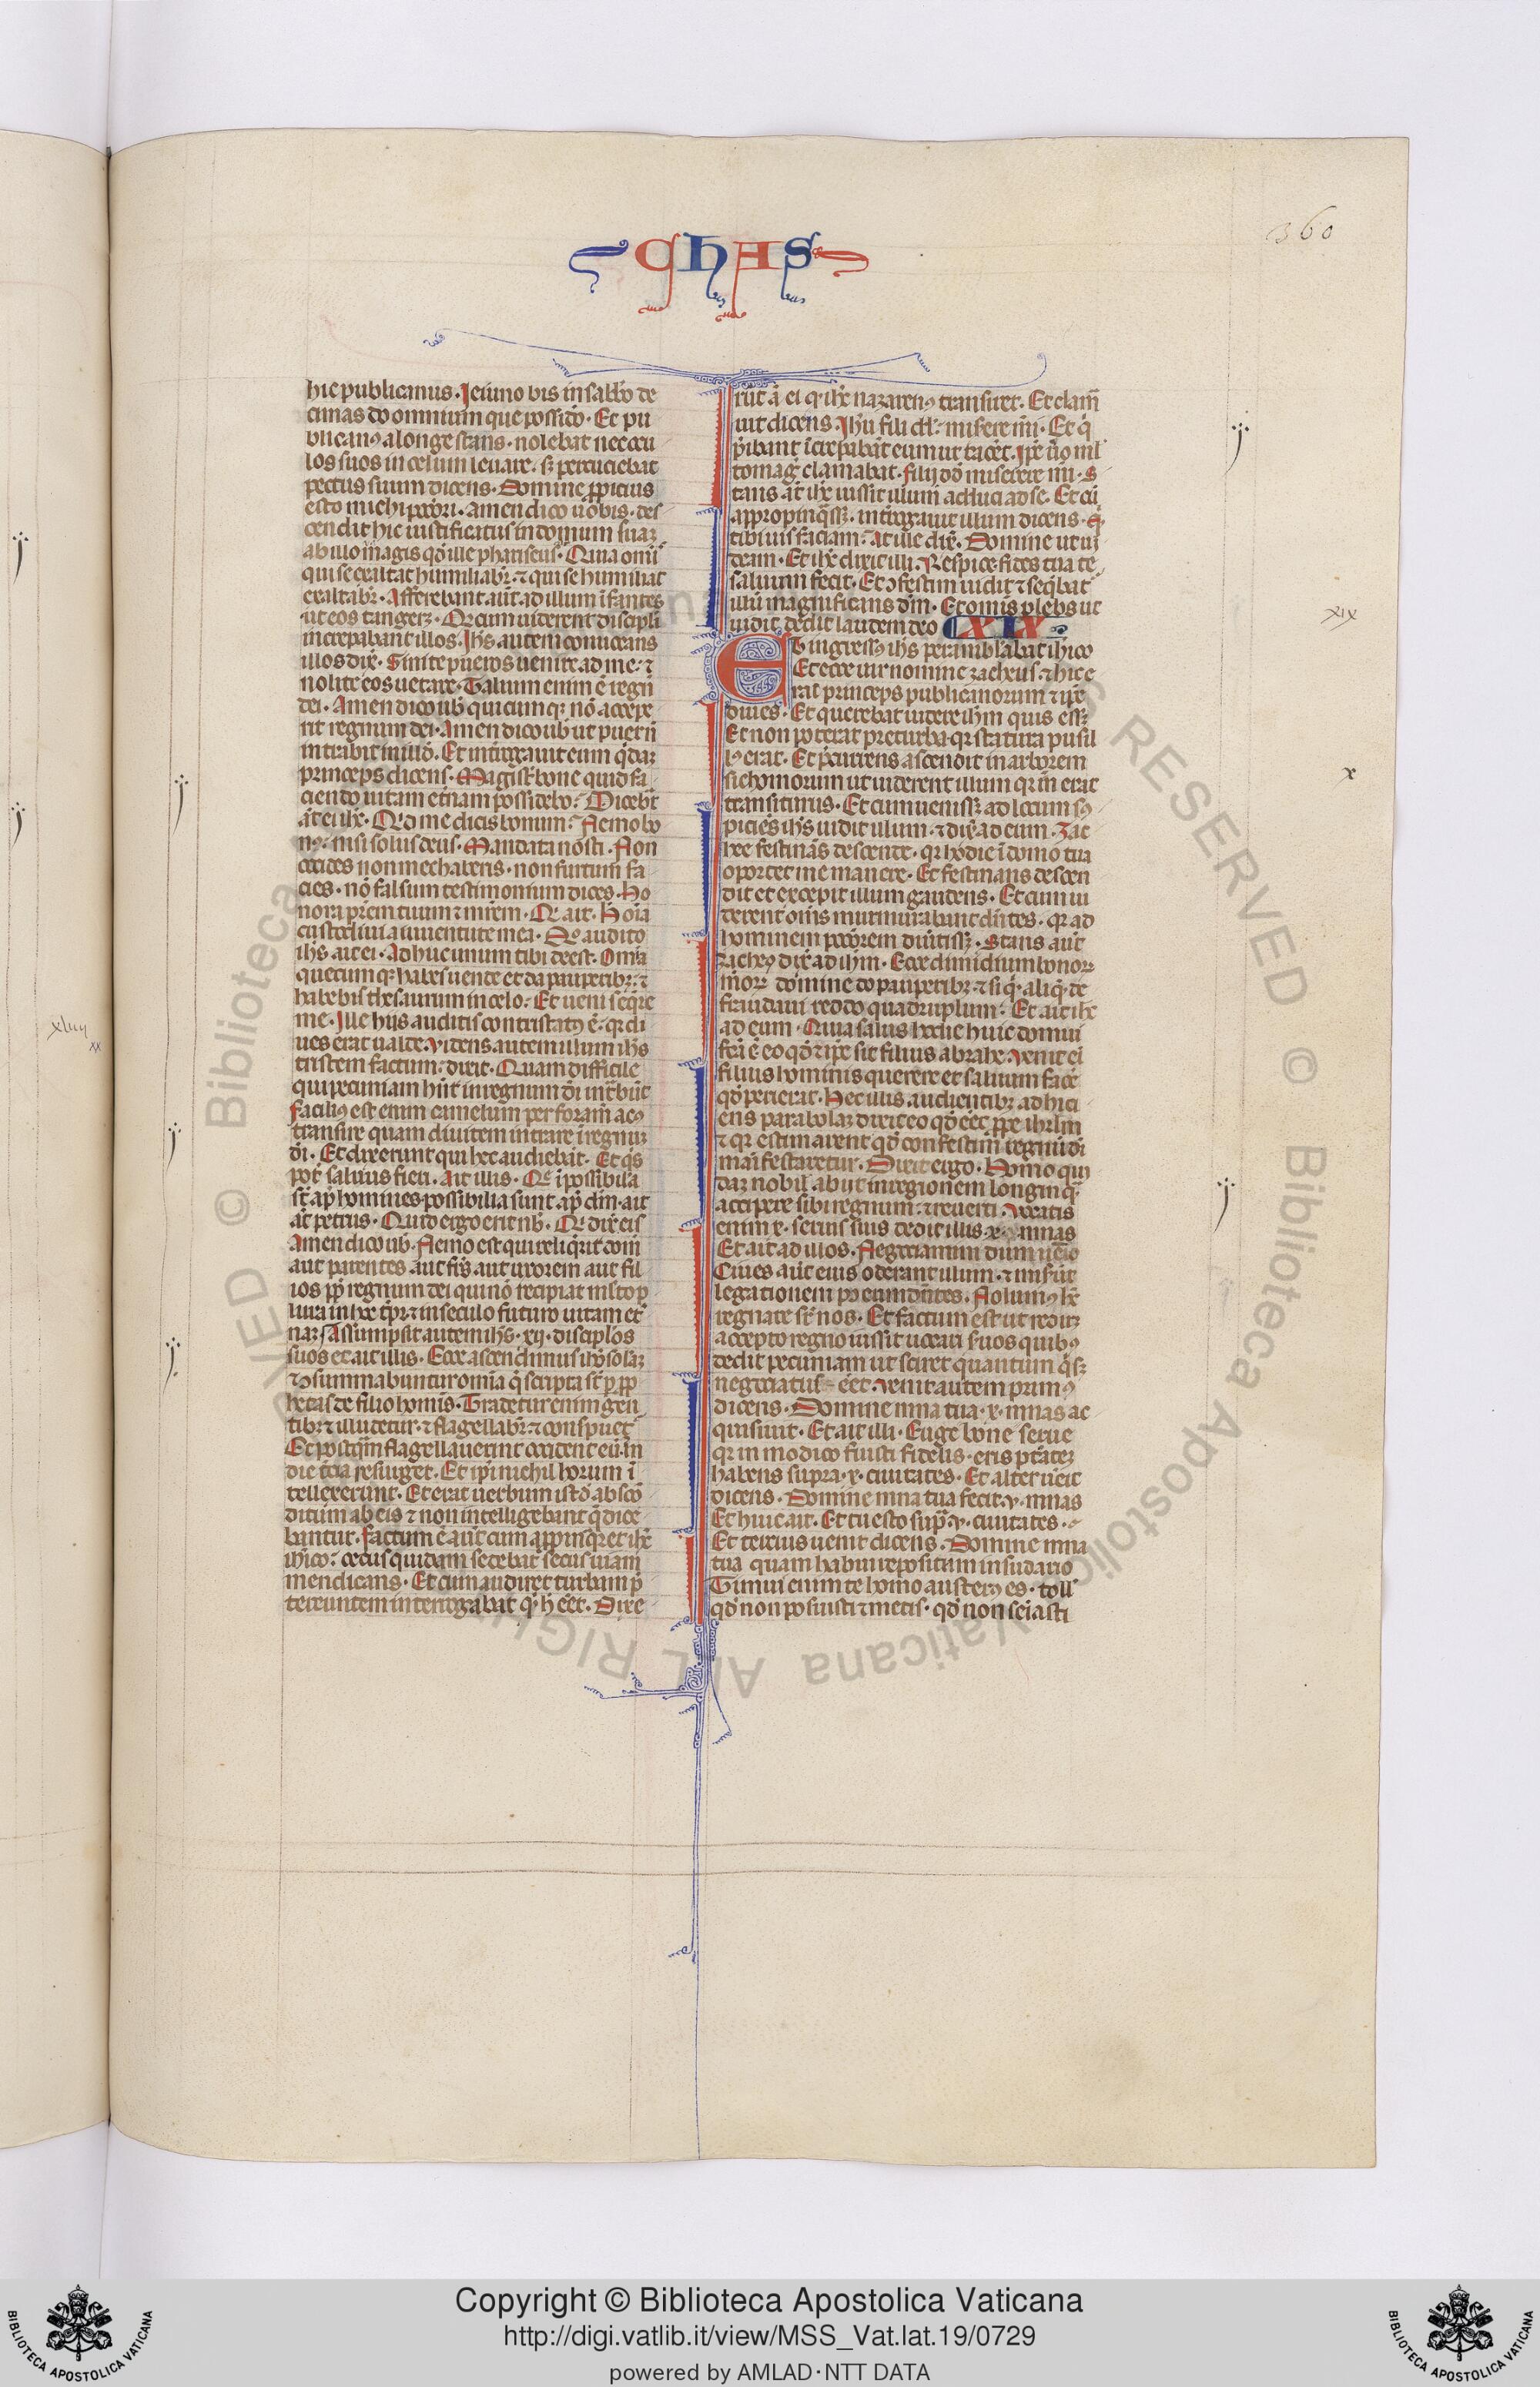 360
CHAS
hic publicanus. Ieiuno bis in sabbo de
cimas do omnium que possido. Et pu
blicanus a longe stans. nolebat nec ocu
los suos in celum leuare. sꝫ percuciebat
pectus suum dicens. Domine ꝓpicius
esto michi pctori. amen dico uobis. des
cendit hic iustificatus in domum suaꝫ
ab illo magis qđ ille phariseus. Quia omīs
qui se exaltat humiliabr̄. ⁊ qui se humiliat
exaltabr̄. Afferebant aūt ad illum īfantes
ut eos tangerꝫ. Qđ cum uiderent discipli
increpabant illos. Ihs autem conuocans
illos dix̄. Sinite pueros uenire ad me. ⁊
nolite eos uetare. Talium enim ē regnū
dei. Amen dico uob quicumqꝫ nō accepe
rit regnum dei. Amen dico uob ut puer nō
intrabit in illō. Et int̄rogauit eum qᵈdaꝫ
princeps dicens. Magistr̄ bone quid fa
ciendo uitam et̄nam possidebo. Dicebt
aūt ei ihc̄. Qᵈd me dicis bonum. Nemo bo
nꝰ. nisi solus deus. Mandata nosti. Non
occides non mechaberis. non furtum fa
cies. nō falsum testimonium dices. Ho
nora pr̄em tuum ⁊ mr̄em. Qi ait. Hec oīa
custodiui a iuuentute mea. Qo audito
ihs ait ei. Adhuc unum tibi deest. Omīa
quecumqꝫ habes uende et da pauperibꝫ. ⁊
habebis thesaurum in celo. Et ueni seqr̄e
me. Ille hiis auditis contristatꝰ ē. qꝛ di
ues erat ualde. Videns autem illum ihs
tristem factum. dixit. Quam difficile
qui pecuniam hn̄t in regnum dī int̄būt
Faciliꝰ est enim camelum per foram̄ acꝰ
transire quam diuitem intrare ī regnuꝫ
dī. Et dixerunt qui hec audiebāt. Et qⁱs
pot̄ saluus fieri. Ait illis. Qᵉ īpossibilia
st̄ apᵈ homines possibilia sunt apᵈ dm̄. ait
aūt petrus. Quid ergo erit nob. Qi dix̄ eis
Amen dico uob. Nemo est qui reliqᵉrit domū
aut parentes aut fr̄s aut uxorem aut fil
ios ꝓpt̄ regnum dei qui nō recipiat m̄lto p
lura in hoc tp̄r ⁊ in seculo futuro uitam et̄
naꝫ. Assumpsit autem ihs. xij. disciplos
suos et ait illis. Ecce ascendimus ihrosolaꝫ
⁊ ꝯsummabuntur omīa qᵉ scripta st̄ ꝑ ꝓp
hetas de filio homīs. Tradetur enim gen
tibꝫ ⁊ illudetur. ⁊ flagellabr̄. ⁊ conspuet̄
Et postqᵃm flagellauerint occident eū. In
die t̄cia resurget. Et ipi nichil horum ī
tellexerunt. Et erat uerbum istđ absco
ditum ab eis ⁊ non intelligebant qᵉ dice
bantur. Factum ē aūt cum apꝓinqᵃret ihc̄
ihico. cecus quidam sedebat secus uiam
mendicans. Et cum audiret turbam p̄
tereuntem interrogabat qⁱd h̄ eēt. Dixe
rūt aū ei qᵈ ihc̄ nazarenꝰ transiret. Et clam̄
uit dicens. Ihu fili dd̄. miserere mī. Et qⁱ
p̄ibant īcrepabāt eum ut tac̄et. Ip̄e ūo ml̄
to mag̅ clamabat. Filij dd̄ miserere mī. S
tans aūt ihc̄ iussit illum adduci ad se. Et cū
appropinqᵃssꝫ. int̄rogauit illum dicens. Qⁱd
tibi uis faciam. At ille dix̄. Domine ut ui
deam. Et ihc̄ dixit illi. Respice fides tua te
saluum fecit. Et ꝯfestim uidit ⁊ seqᵉbat̄
illū magnificans dm̄. Et omīs plebs ut
uidit dedit laudem deo C XIX
Et ingressꝰ ihs perambl̄abat ihico
Et ecce uir nomine zacheus. ⁊ hic e
rat princeps publicanorum ⁊ ipe
diues. Et querebat uidere ihm quis essꝫ
Et non poterat pre turba. qꝛ statura pusil
lꝰ erat. Et p̄currens ascendit in arborem
sichomorum ut uiderent illum qꝛ in erat
transiturus. Et cum uenissꝫ ad locum sꝰ
piciēs ihs uidit illum. ⁊ dix̄ ad eum. Zac
hee festinās descende. qꝛ hodie ī domo tua
oportet me manere. Et festinans descen
dit et excepit illum gaudens. Et cum ui
derent oms murmurabant dicētes. qᵈ ad
hominem pctōrem diūtissꝫ. Stans aūt
zacheꝰ dix̄ ad ihm. Ecce dimidium bonoꝝ
meoꝝ domine do pauperibꝫ ⁊ si qⁱd aliqᵉ de
fraudaui reddo quadruplum. Et ait ihc̄
ad eum. Quia salus hodie huic domui
fcā ē eo qđ ⁊ ipe sit filius abrahe. Venit ei
filius hominis querere et saluum face
qđ perierat. Hec illis audientibꝫ adhici
ens parabolaꝫ dixit eo qđ eēt ꝓpe ihrlm
⁊ qꝛ estimarent qđ confestim regnū dī
manifestaretur. Dixit ergo. Homo qui
daꝫ nobil̄ abiit in regionem longinqᵃ
accipere sibi regnum. ⁊ reuerti. Vocatis
enim x. seruis suis dedit illis x. mnas
Et ait ad illos. Negociamini dum uēio
Ciues aūt eius oderant illum. ⁊ misert̄
legationem p᷑ eum dicētes. Nolumꝰ hc̄
regnare sr̄ nos. Et factum est ut rediꝫ
accepto regno iussit uocari s̄uos quibꝰ
dedit pecuniam ut sciret quantum qⁱsqꝫ
negociatus eēt. Venit autem primꝰ
dicens. Domine mna tua. x. mnas ac
quisiuit. Et ait illi. Euge bone serue
qꝛ in modico fuisti fidelis. eris ptāteꝫ
habens supra. x. ciuitates. Et alter ūeit
dicens. Domine mna tua fecit. v. mnas
Et huic ait. Et tu esto sup̄. v. ciuitates.
Et tercius uenit dicens. Domine mna
tua quam habui repositam in sudario
Timui enim te homo austerꝰ es. toll̄
qđ non posuisti ⁊ metis. qđ non seīasti
xix
x
xluii
xx
Copyright © Biblioteca Apostolica Vaticana
http://digi.vatlib.it/view/MSS_Vat.lat.19/0729
powered by AMLAD·NTT DATA
© Biblioteca Apostolica Vaticana ALL RIGHTS RESERVED
BIBLIOTECA APOSTOLICA VATICANA
BIBLIOTECA APOSTOLICA VATICANA